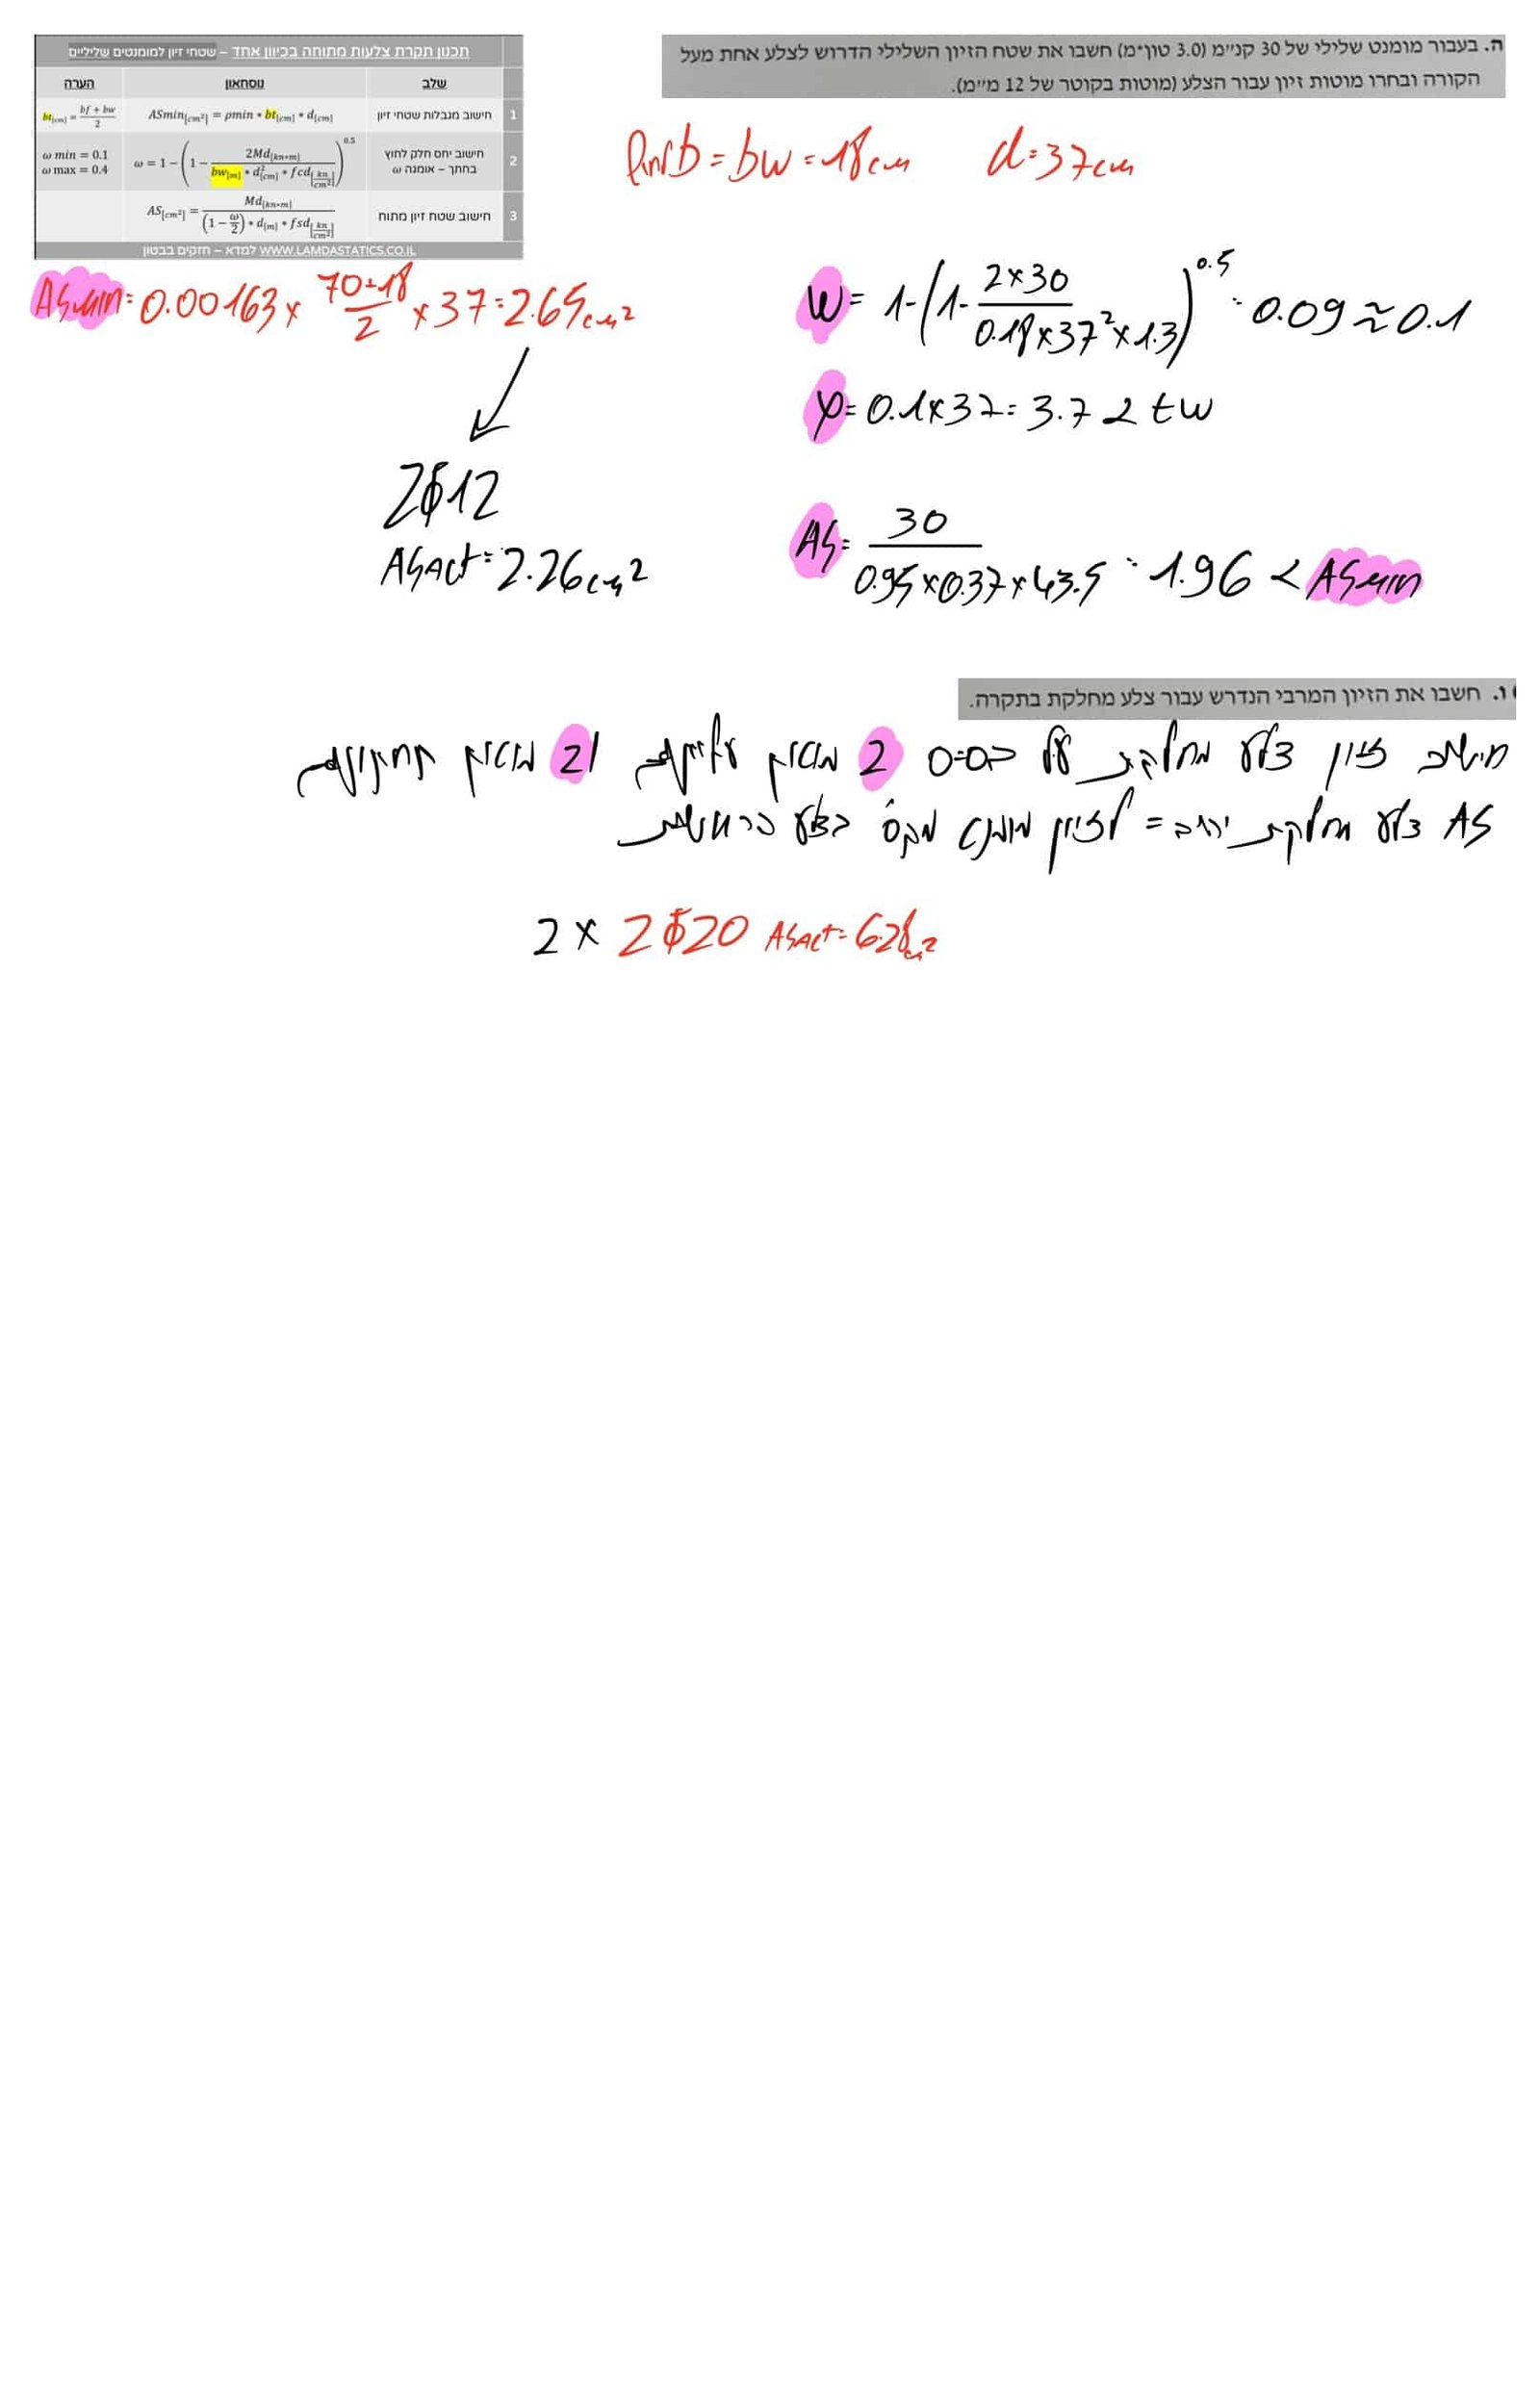 ה. בעבור מומנט שלילי של 30 קנ״מ (3.0 טון*מ) חשבו את שטח הזיון השלילי הדרוש לצלע אחת מעל
הקורה ובחרו מוטות זיון עבור הצלע (מוטות בקוטר של 12 מ״מ).
תכנון תקרת צלעות מתוחה בכיוון אחד – שטחי זיון למומנטים שליליים
שלב נוסחאון הערה
1 חישוב מגבלות שטחי זיון ASmin[cm²] = ρmin * bt[cm] * d[cm] bt[cm] = (bf + bw)/2
2 חישוב יחס חלק לחוץ בחתך – אומגה ω ω = 1 − (1 − 2Md[kn*m] / (bw[m] * d²[cm] * fcd[kn/cm²]))^0.5 ω min = 0.1 ω max = 0.4
3 חישוב שטח זיון מתוח AS[cm²] = Md[kn*m] / ((1 − ω/2) * d[m] * fsd[kn/cm²])
WWW.LAMDASTATICS.CO.IL למדא – חזקים בבטון
b = bw = 18cm d = 37cm
ASmin = 0.00163 x (70+18)/2 x 37 = 2.65cm²
2ϕ12
ASact = 2.26cm²
W = 1-(1- 2x30 / (0.18x37²x1.3))^0.5 = 0.09 ≈ 0.1
= 0.1x37 = 3.7
AS = 30 / (0.95x0.37x43.5) = 1.96 < ASmin
ו. חשבו את הזיון המרבי הנדרש עבור צלע מחלקת בתקרה.
חישוב זיון צלע מחלקת על 2 מוטות עליונים ו2 מוטות תחתונים
AS צלע מחלקת יהיה = לזיון מומנט מקס׳ בצלע
2 x 2ϕ20 ASact = 6.28cm²